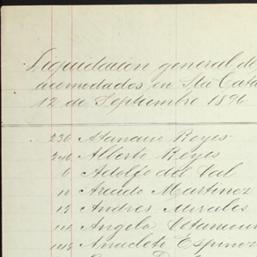 Liquidacion general de
acomodados en Sta Cata
12 de Septiembre 1896
236 Atanacio Reyes
Alberto Reyes
6 Adolfo del Val
Arcadio Martinez
Andres Morales
Angela Betancur
Anacleto Espinoz